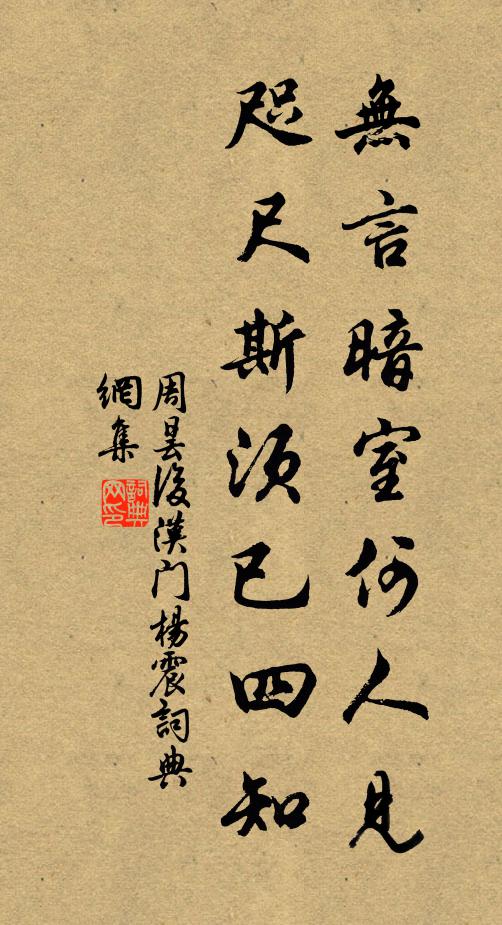 無言暗室何人見
咫尺斯須已四知
周曇後漢门楊震詞典
網集
詞典
网印